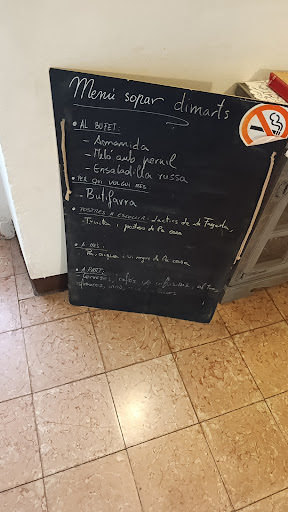 Menú sopar dimarts
• AL BUFET:
- Amanida
- Meló amb pernil
- Ensaladilla russa
• PER QUI VULGUI MÉS
- Butifarra
• POSTRES A ESCOLLIR: Làctics de la Fageda,
Fruita i postres de la casa
• A MÉS:
Pa, aigua i vi negre de la casa
• A PART:
Cerveses, cafès,